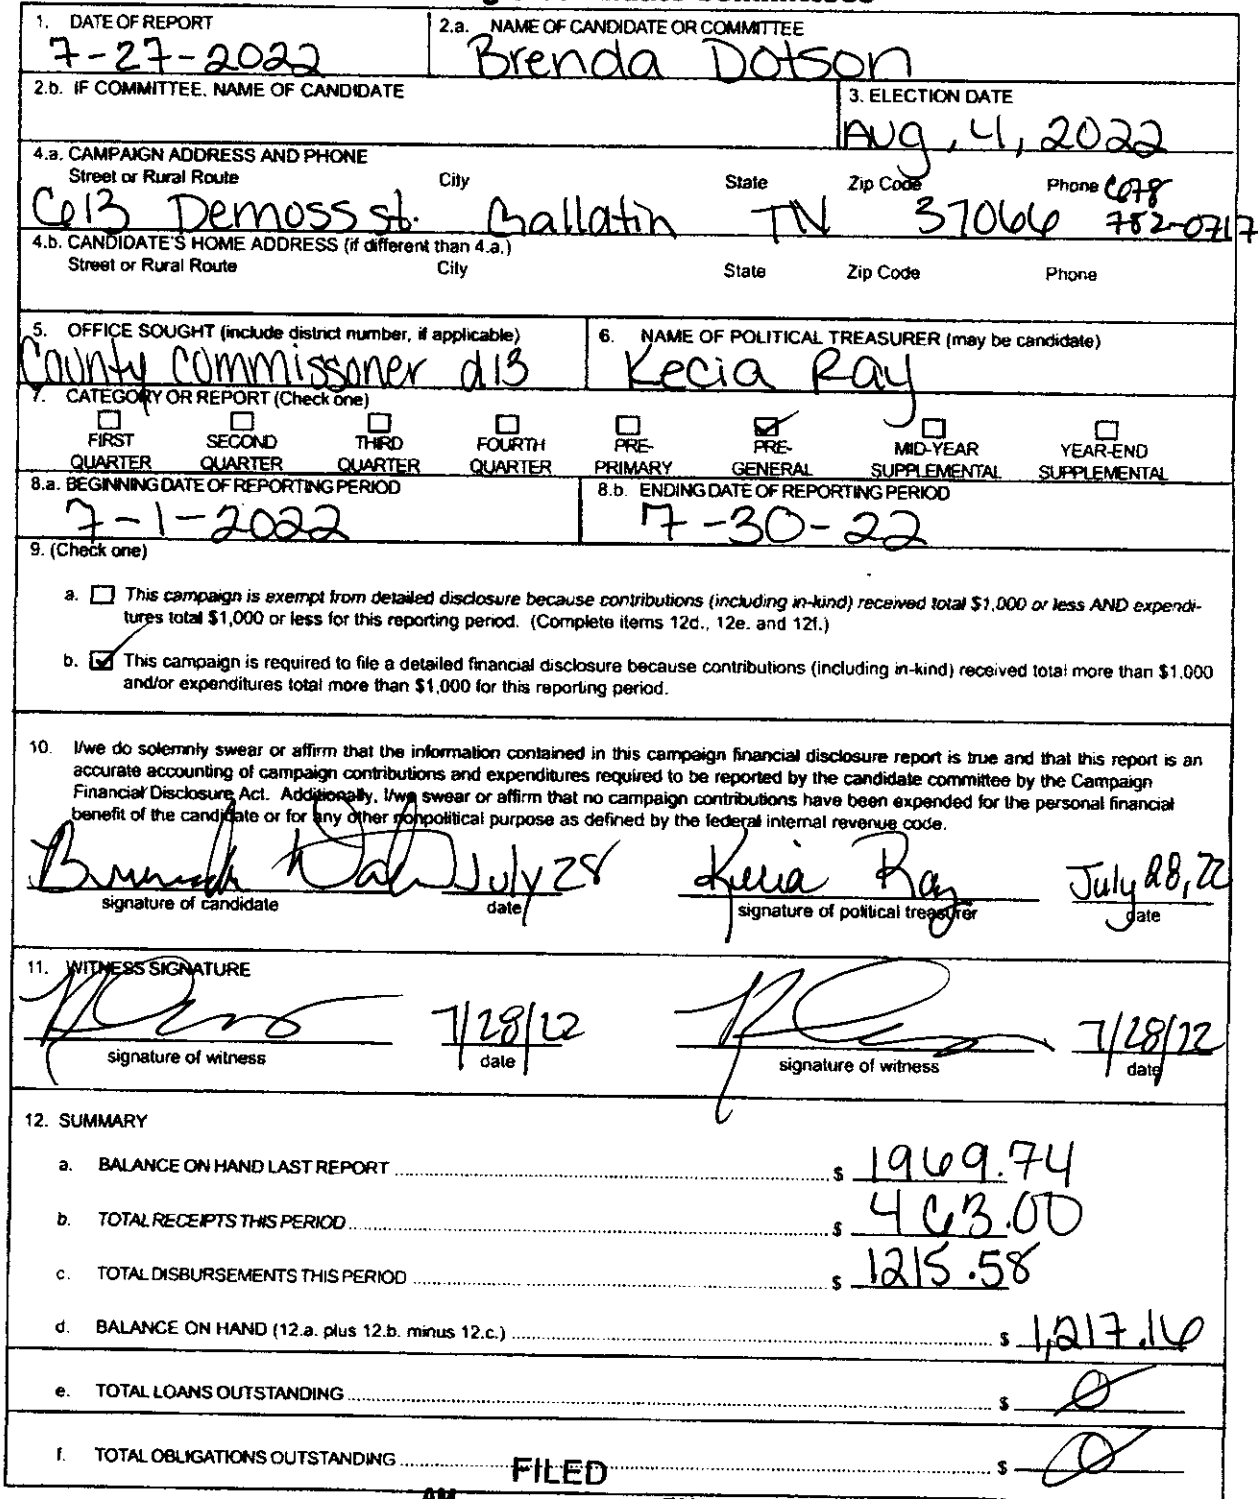 1. DATE OF REPORT
7-27-2022
2.a. NAME OF CANDIDATE OR COMMITTEE
Brenda Dotson
2.b. IF COMMITTEE, NAME OF CANDIDATE
3. ELECTION DATE
Aug, 4, 2022
4.a. CAMPAIGN ADDRESS AND PHONE
Street or Rural Route City State Zip Code Phone 678
613 Demoss st. Gallatin TN 37066 752-0717
4.b. CANDIDATE'S HOME ADDRESS (if different than 4.a.)
Street or Rural Route City State Zip Code Phone
5. OFFICE SOUGHT (include district number, if applicable)
County Commissoner d13
6. NAME OF POLITICAL TREASURER (may be candidate)
Kecia Ray
7. CATEGORY OR REPORT (Check one)
FIRST QUARTER
SECOND QUARTER
THIRD QUARTER
FOURTH QUARTER
PRE-PRIMARY
PRE-GENERAL
MID-YEAR SUPPLEMENTAL
YEAR-END SUPPLEMENTAL
8.a. BEGINNING DATE OF REPORTING PERIOD
7-1-2022
8.b. ENDING DATE OF REPORTING PERIOD
7-30-22
9. (Check one)
a. This campaign is exempt from detailed disclosure because contributions (including in-kind) received total $1,000 or less AND expendi-
tures total $1,000 or less for this reporting period. (Complete items 12d., 12e. and 12f.)
b. This campaign is required to file a detailed financial disclosure because contributions (including in-kind) received total more than $1,000
and/or expenditures total more than $1,000 for this reporting period.
10. I/we do solemnly swear or affirm that the information contained in this campaign financial disclosure report is true and that this report is an
accurate accounting of campaign contributions and expenditures required to be reported by the candidate committee by the Campaign
Financial Disclosure Act. Additionally, I/we swear or affirm that no campaign contributions have been expended for the personal financial
benefit of the candidate or for any other nonpolitical purpose as defined by the federal internal revenue code.
July 28 Kecia Ray July 28, 22
signature of candidate date signature of political treasurer date
11. WITNESS SIGNATURE
7/28/22 7/28/22
signature of witness date signature of witness date
12. SUMMARY
a. BALANCE ON HAND LAST REPORT $ 1969.74
b. TOTAL RECEIPTS THIS PERIOD $ 463.00
c. TOTAL DISBURSEMENTS THIS PERIOD $ 1215.58
d. BALANCE ON HAND (12.a. plus 12.b. minus 12.c.) $ 1,217.16
e. TOTAL LOANS OUTSTANDING $ 0
f. TOTAL OBLIGATIONS OUTSTANDING $ 0
FILED
AM